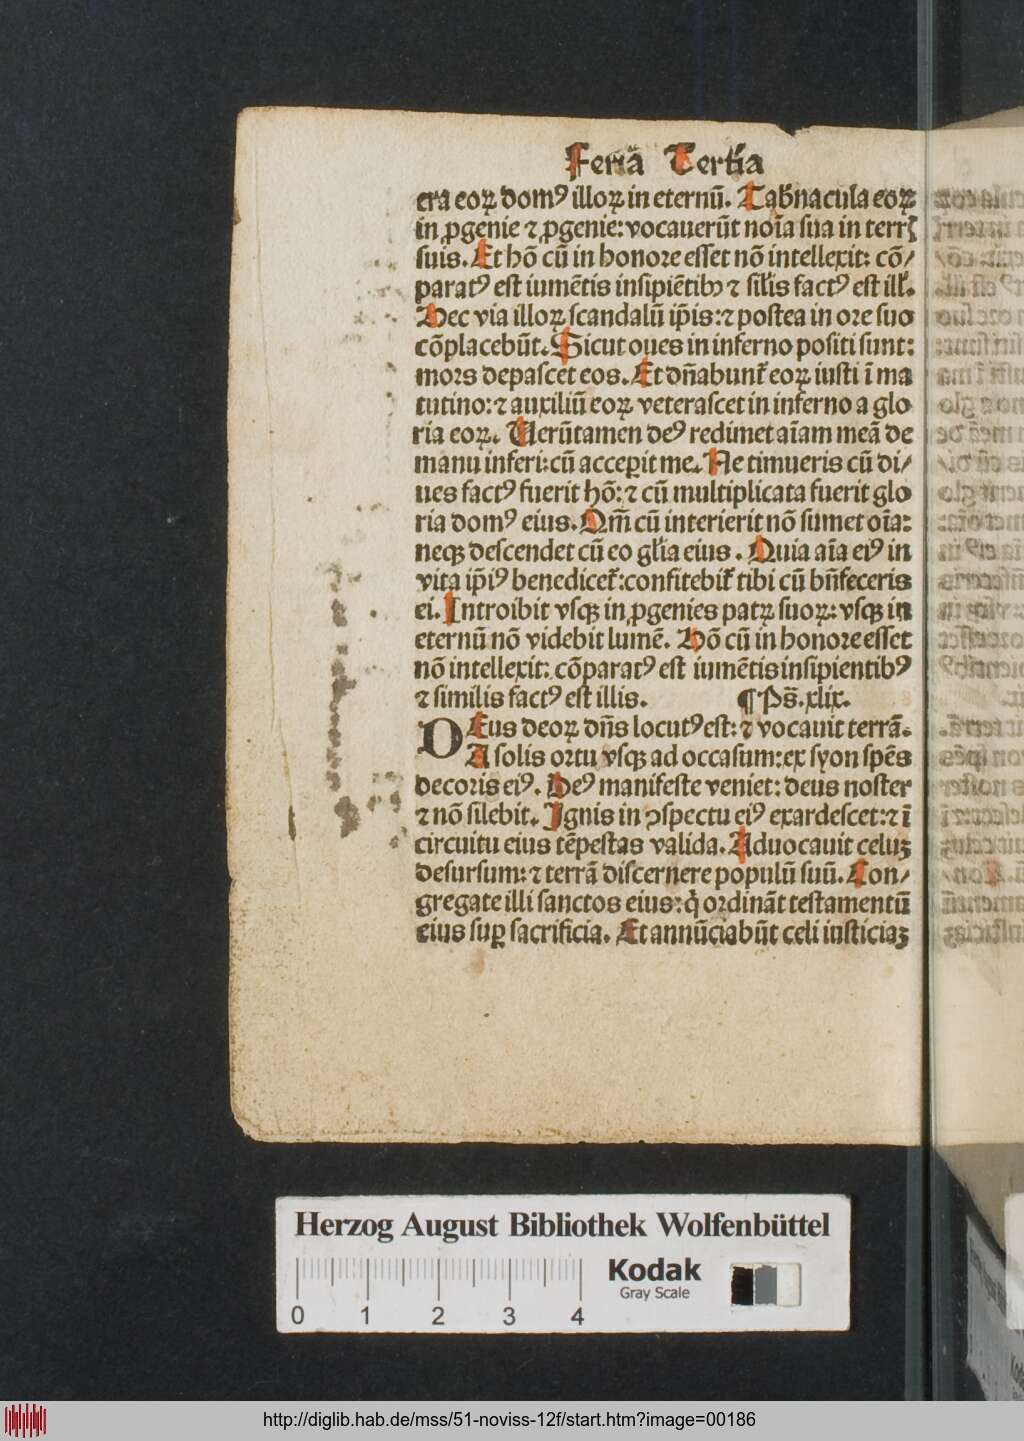 Feria Tertia
cra eoꝝ domꝰ illoꝝ in eternū. Tab̄nacula eoꝝ
in ꝓgenie ⁊ ꝓgenie: vocauerūt noīa sua in terrꝭ
suis. Et hō cū in honore esset nō intellexit: cō/
paratꝰ est iumētis insipiētibꝫ ⁊ sil̄is factꝰ est ill̄.
Hec via illoꝝ scandalū ip̄is: ⁊ postea in ore suo
cōplacebūt. Sicut oues in inferno positi sunt:
mors depascet eos. Et dn̄abunt᷑ eoꝝ iusti ī ma
tutino: ⁊ auxiliū eoꝝ veterascet in inferno a glo
ria eoꝝ. Uerūtamen deꝰ redimet aīam meā de
manu inferi: cū acceꝑit me. Ne timueris cū di/
ues factꝰ fuerit hō: ⁊ cū multiplicata fuerit glo
ria domꝰ eius. Qm̄ cū interierit nō sumet oīa:
neqꝫ descendet cū eo gl̄ia eius. Quia aīa eiꝰ in
vita ip̄iꝰ benedicet᷑: confitebit᷑ tibi cū bn̄feceris
ei. Introibit vsqꝫ in ꝓgenies patꝝ suoꝝ: vsqꝫ in
eternū nō videbit lumē. Hō cū in honore esset
nō intellexit: cōparatꝰ est iumētis insipientibꝰ
⁊ similis factꝰ est illis. ¶ Ps̄. xlix.
DEus deoꝝ dn̄s locutꝰ est: ⁊ vocauit terrā.
A solis ortu vsqꝫ ad occasum: ex syon spēs
decoris eiꝰ. Deꝰ manifeste veniet: deus noster
⁊ nō silebit. Ignis in ꝯspectu eiꝰ exardescet: ⁊ ī
circuitu eius tēpestas valida. Aduocauit celuꝫ
desursum: ⁊ terrā discernere populū suū. Con/
gregate illi sanctos eius: q̇ ordināt testamentū
eius suꝑ sacrificia. Et annūciabūt celi iusticiaꝫ
Herzog August Bibliothek Wolfenbüttel
Kodak
Gray Scale
0 1 2 3 4
http://diglib.hab.de/mss/51-noviss-12f/start.htm?image=00186